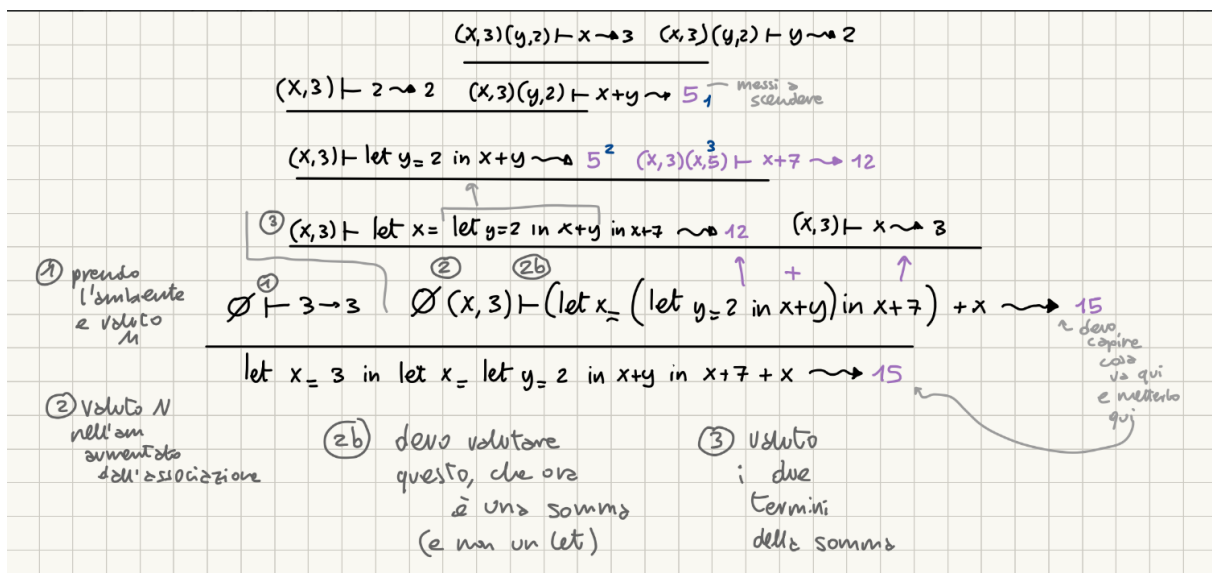 (x,3)(y,2) ⊢ x ⇝ 3 (x,3)(y,2) ⊢ y ⇝ 2
(x,3) ⊢ 2 ⇝ 2 (x,3)(y,2) ⊢ x+y ⇝ 5 1 messi a
scendere
(x,3) ⊢ let y= 2 in x+y ⇝ 5 2 (x,3)(x,5) 3 ⊢ x+7 ⇝ 12
3 (x,3) ⊢ let x= let y=2 in x+y in x+7 ⇝ 12 (x,3) ⊢ x ⇝ 3
1 prendo
l'ambiente
e valuto
M
2 2b +
1
∅ ⊢ 3 → 3 ∅ (x,3) ⊢ (let x = (let y = 2 in x+y) in x+7) + x ⇝ 15
devo
capire
cosa
va qui
e metterlo
qui
let x = 3 in let x = let y = 2 in x+y in x+7 + x ⇝ 15
2 Valuto N
nell'am
aumentato
dall'associazione
2b devo valutare
questo, che ora
è una somma
(e non un let)
3 valuto
i due
termini
della somma